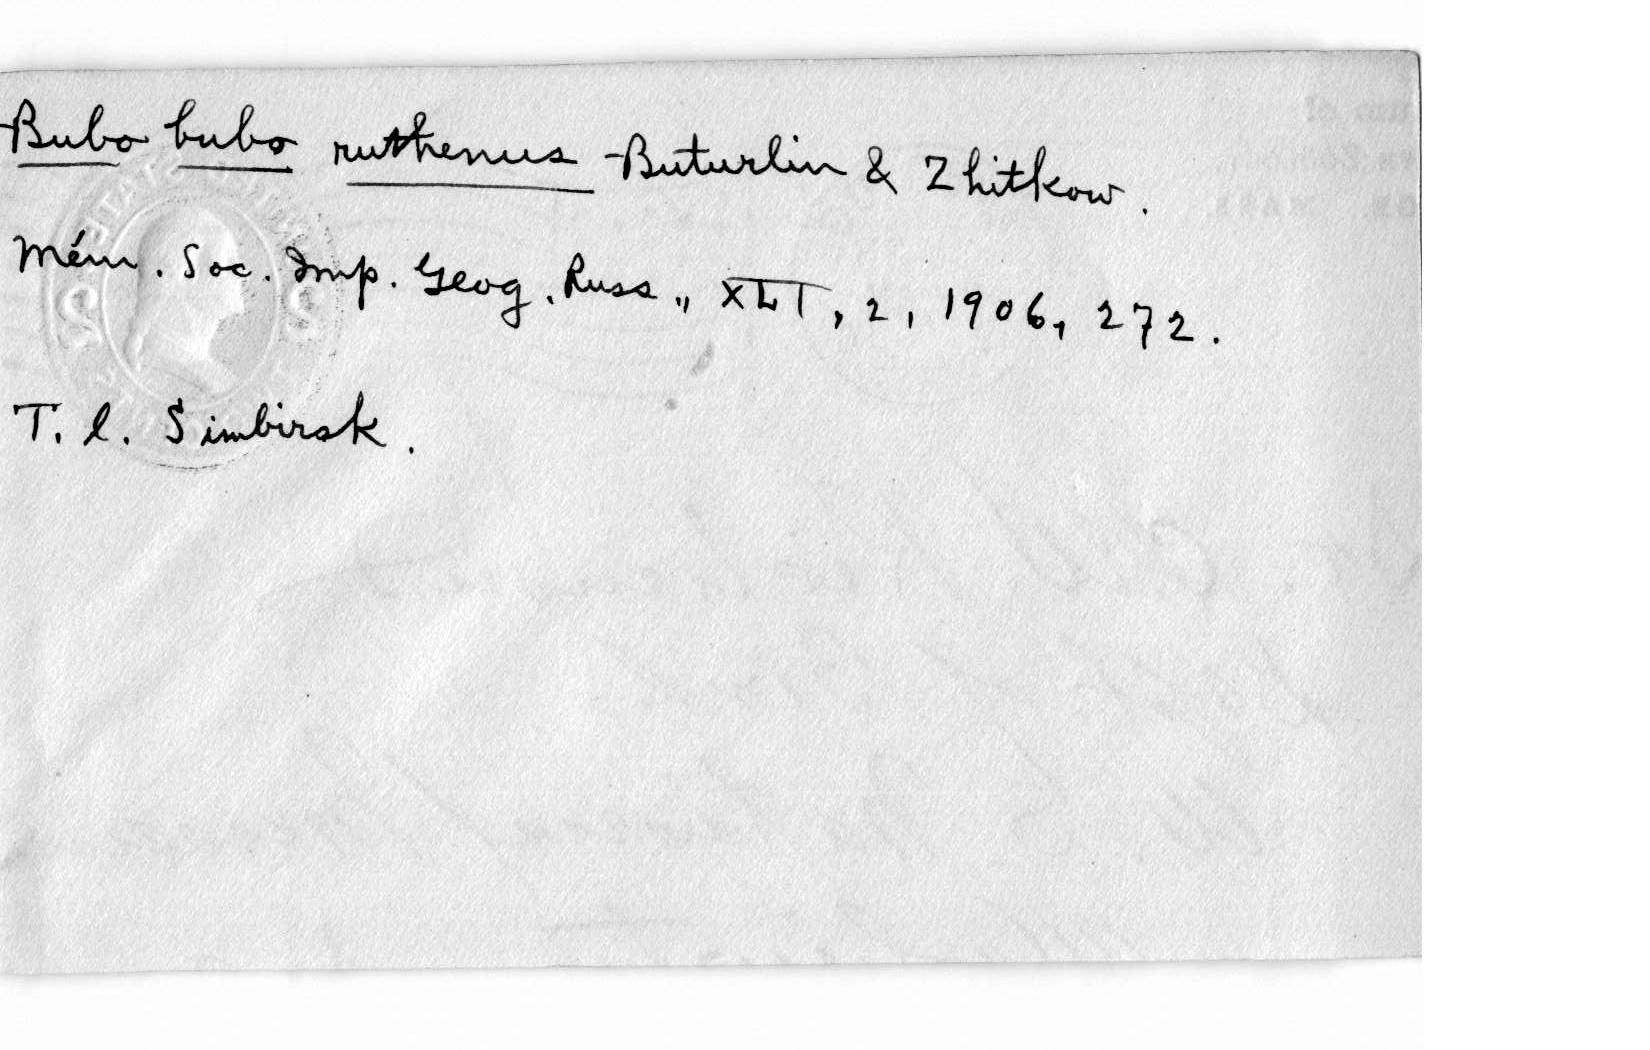 Bubo bubo ruthenus Buturlin & Zhitkow.
Mém. Soc. Imp. Geog. Russ., XLI, 2, 1906, 272.
T. l. Simbirsk.